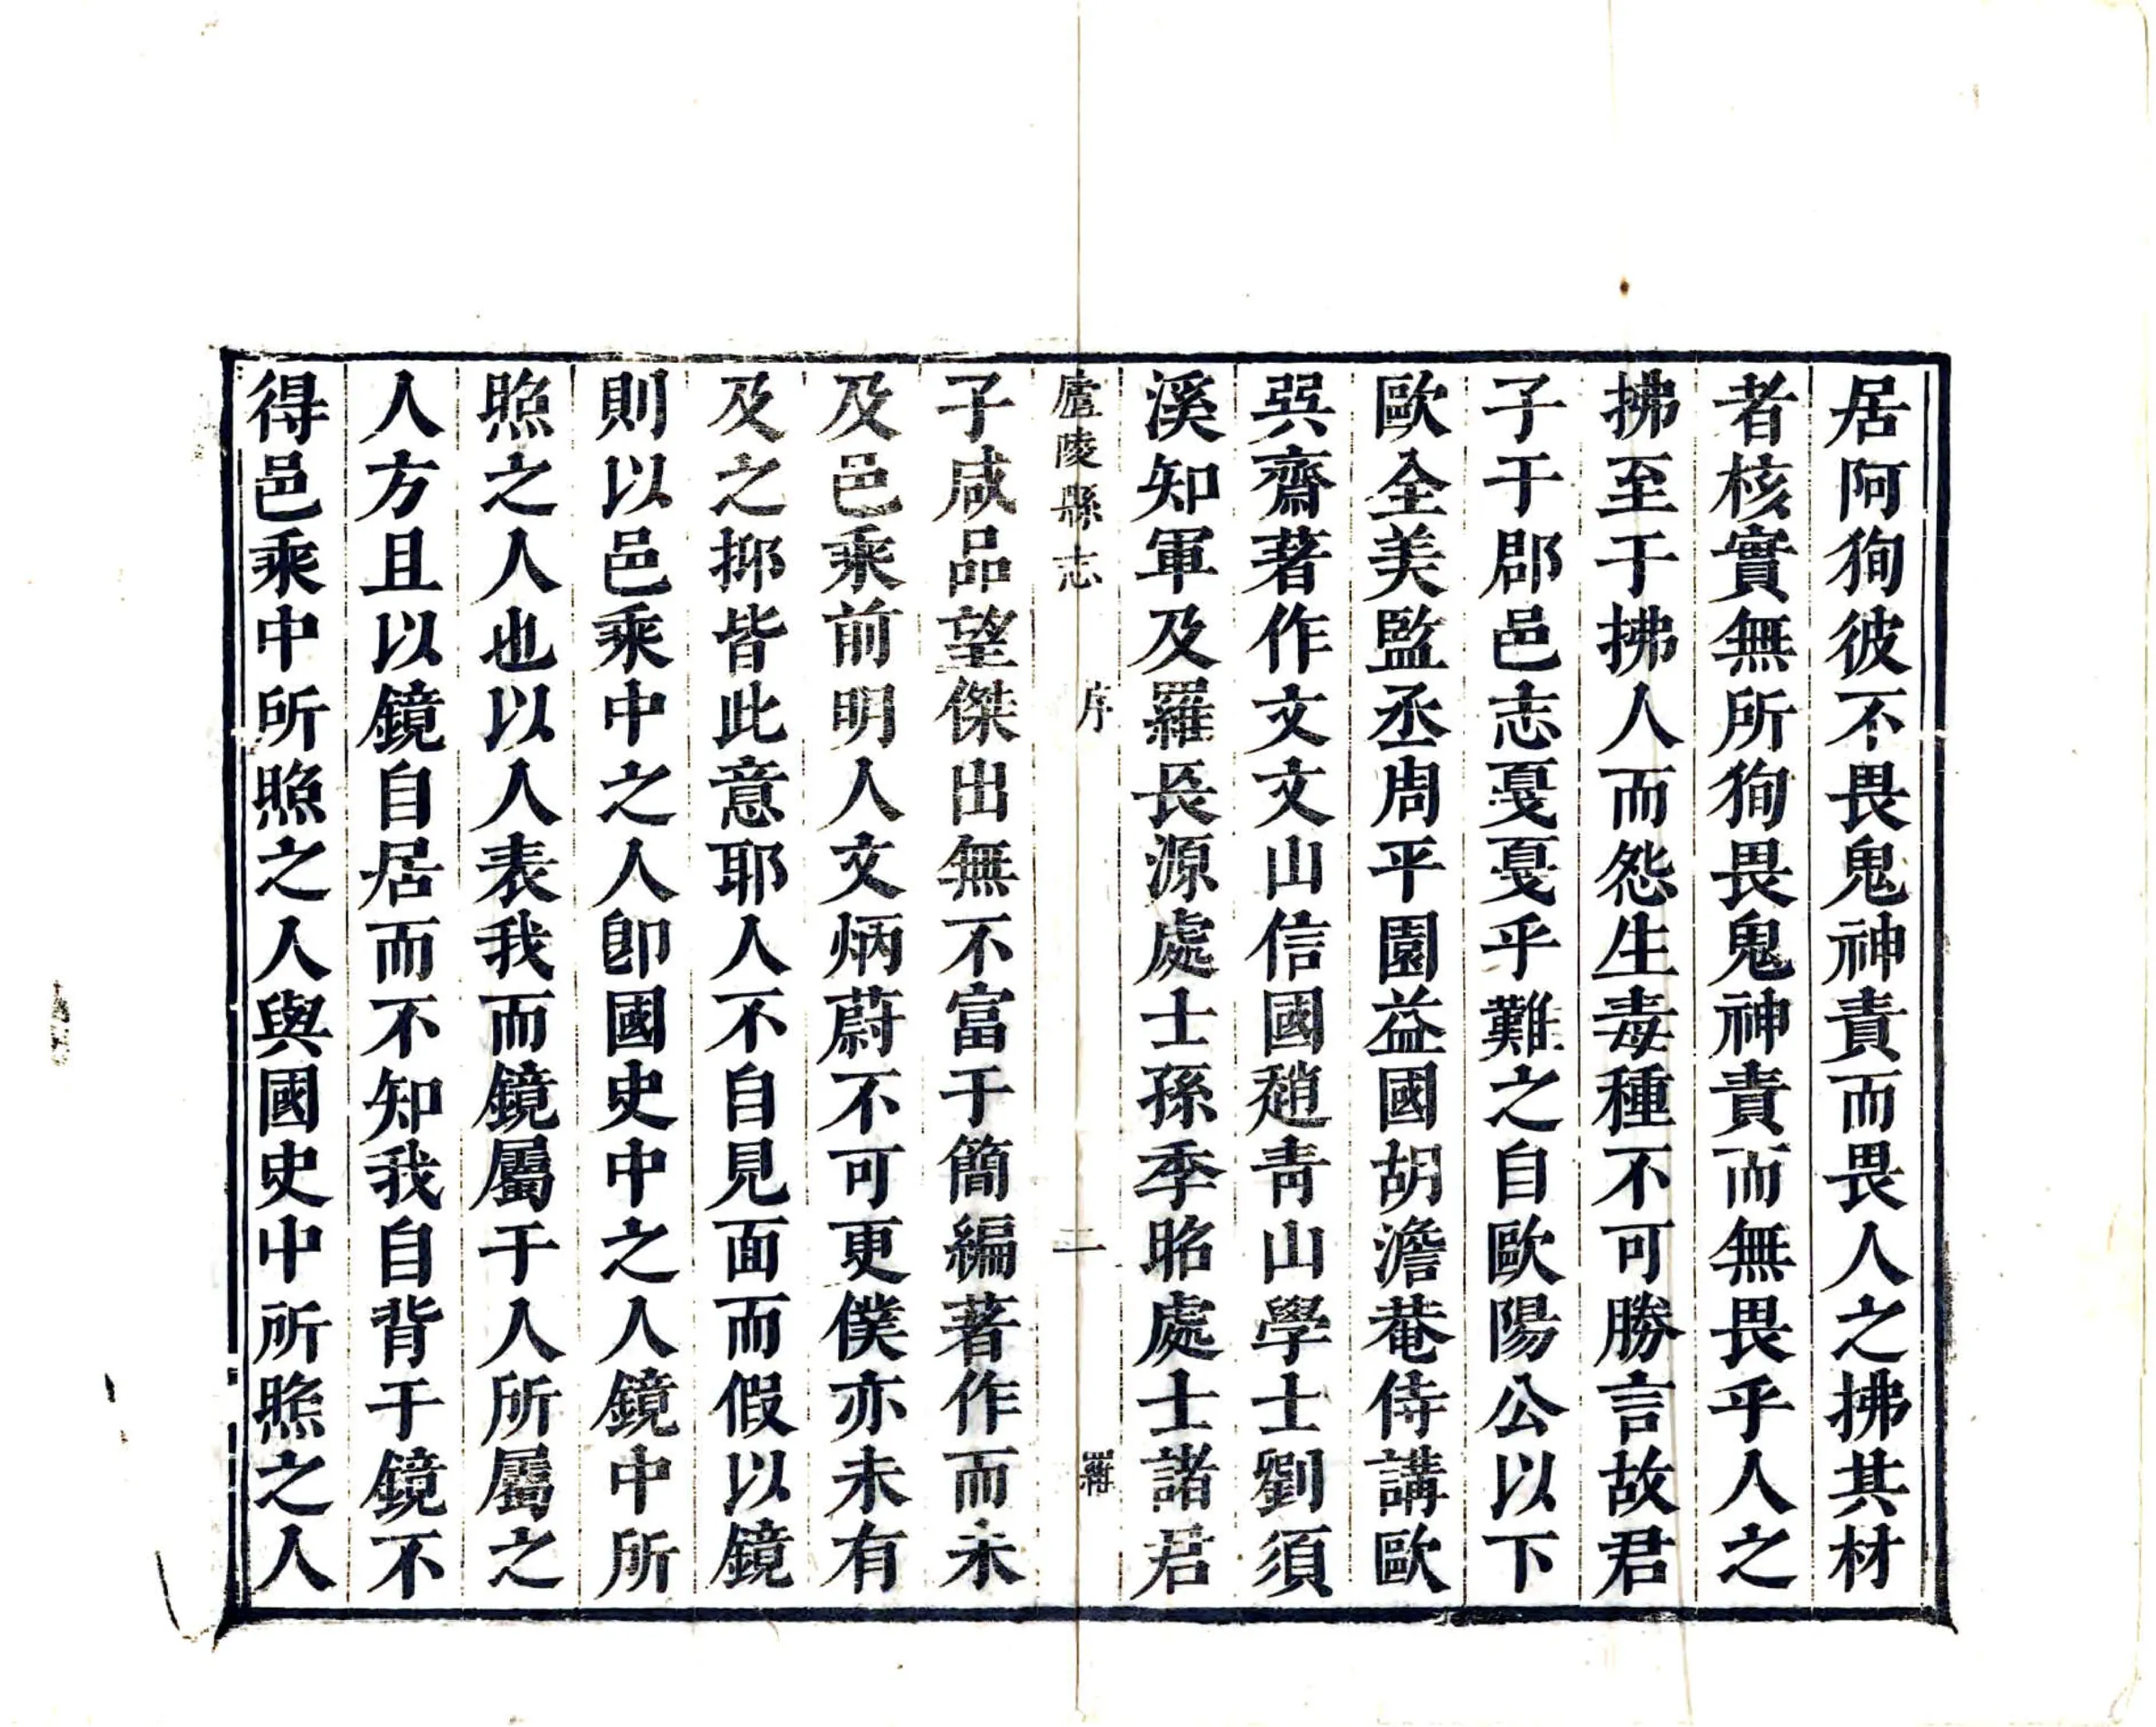 居阿狥彼不畏鬼神責而畏人之拂其材
者核實無所狥畏鬼神責而無畏乎人之
拂至于拂人而怨生毒種不可勝言故君
子于郡邑志戞戞乎難之自歐陽公以下
歐全美監丞周平園益國胡澹菴侍講歐
㢲齋著作文文山信國趙青山學士劉須
溪知軍及羅長源處士孫季昭處士諸君
廬陵縣志 序 二
子咸品望傑出無不富于簡編著作而未
及邑乘前明人文炳蔚不可更僕亦未有
及之抑皆此意耶人不自見面而假以鏡
則以邑乘中之人卽國史中之人鏡中所
照之人也以人表我而鏡屬于人所屬之
人方且以鏡自居而不知我自背于鏡不
得邑乘中所照之人與國史中所照之人